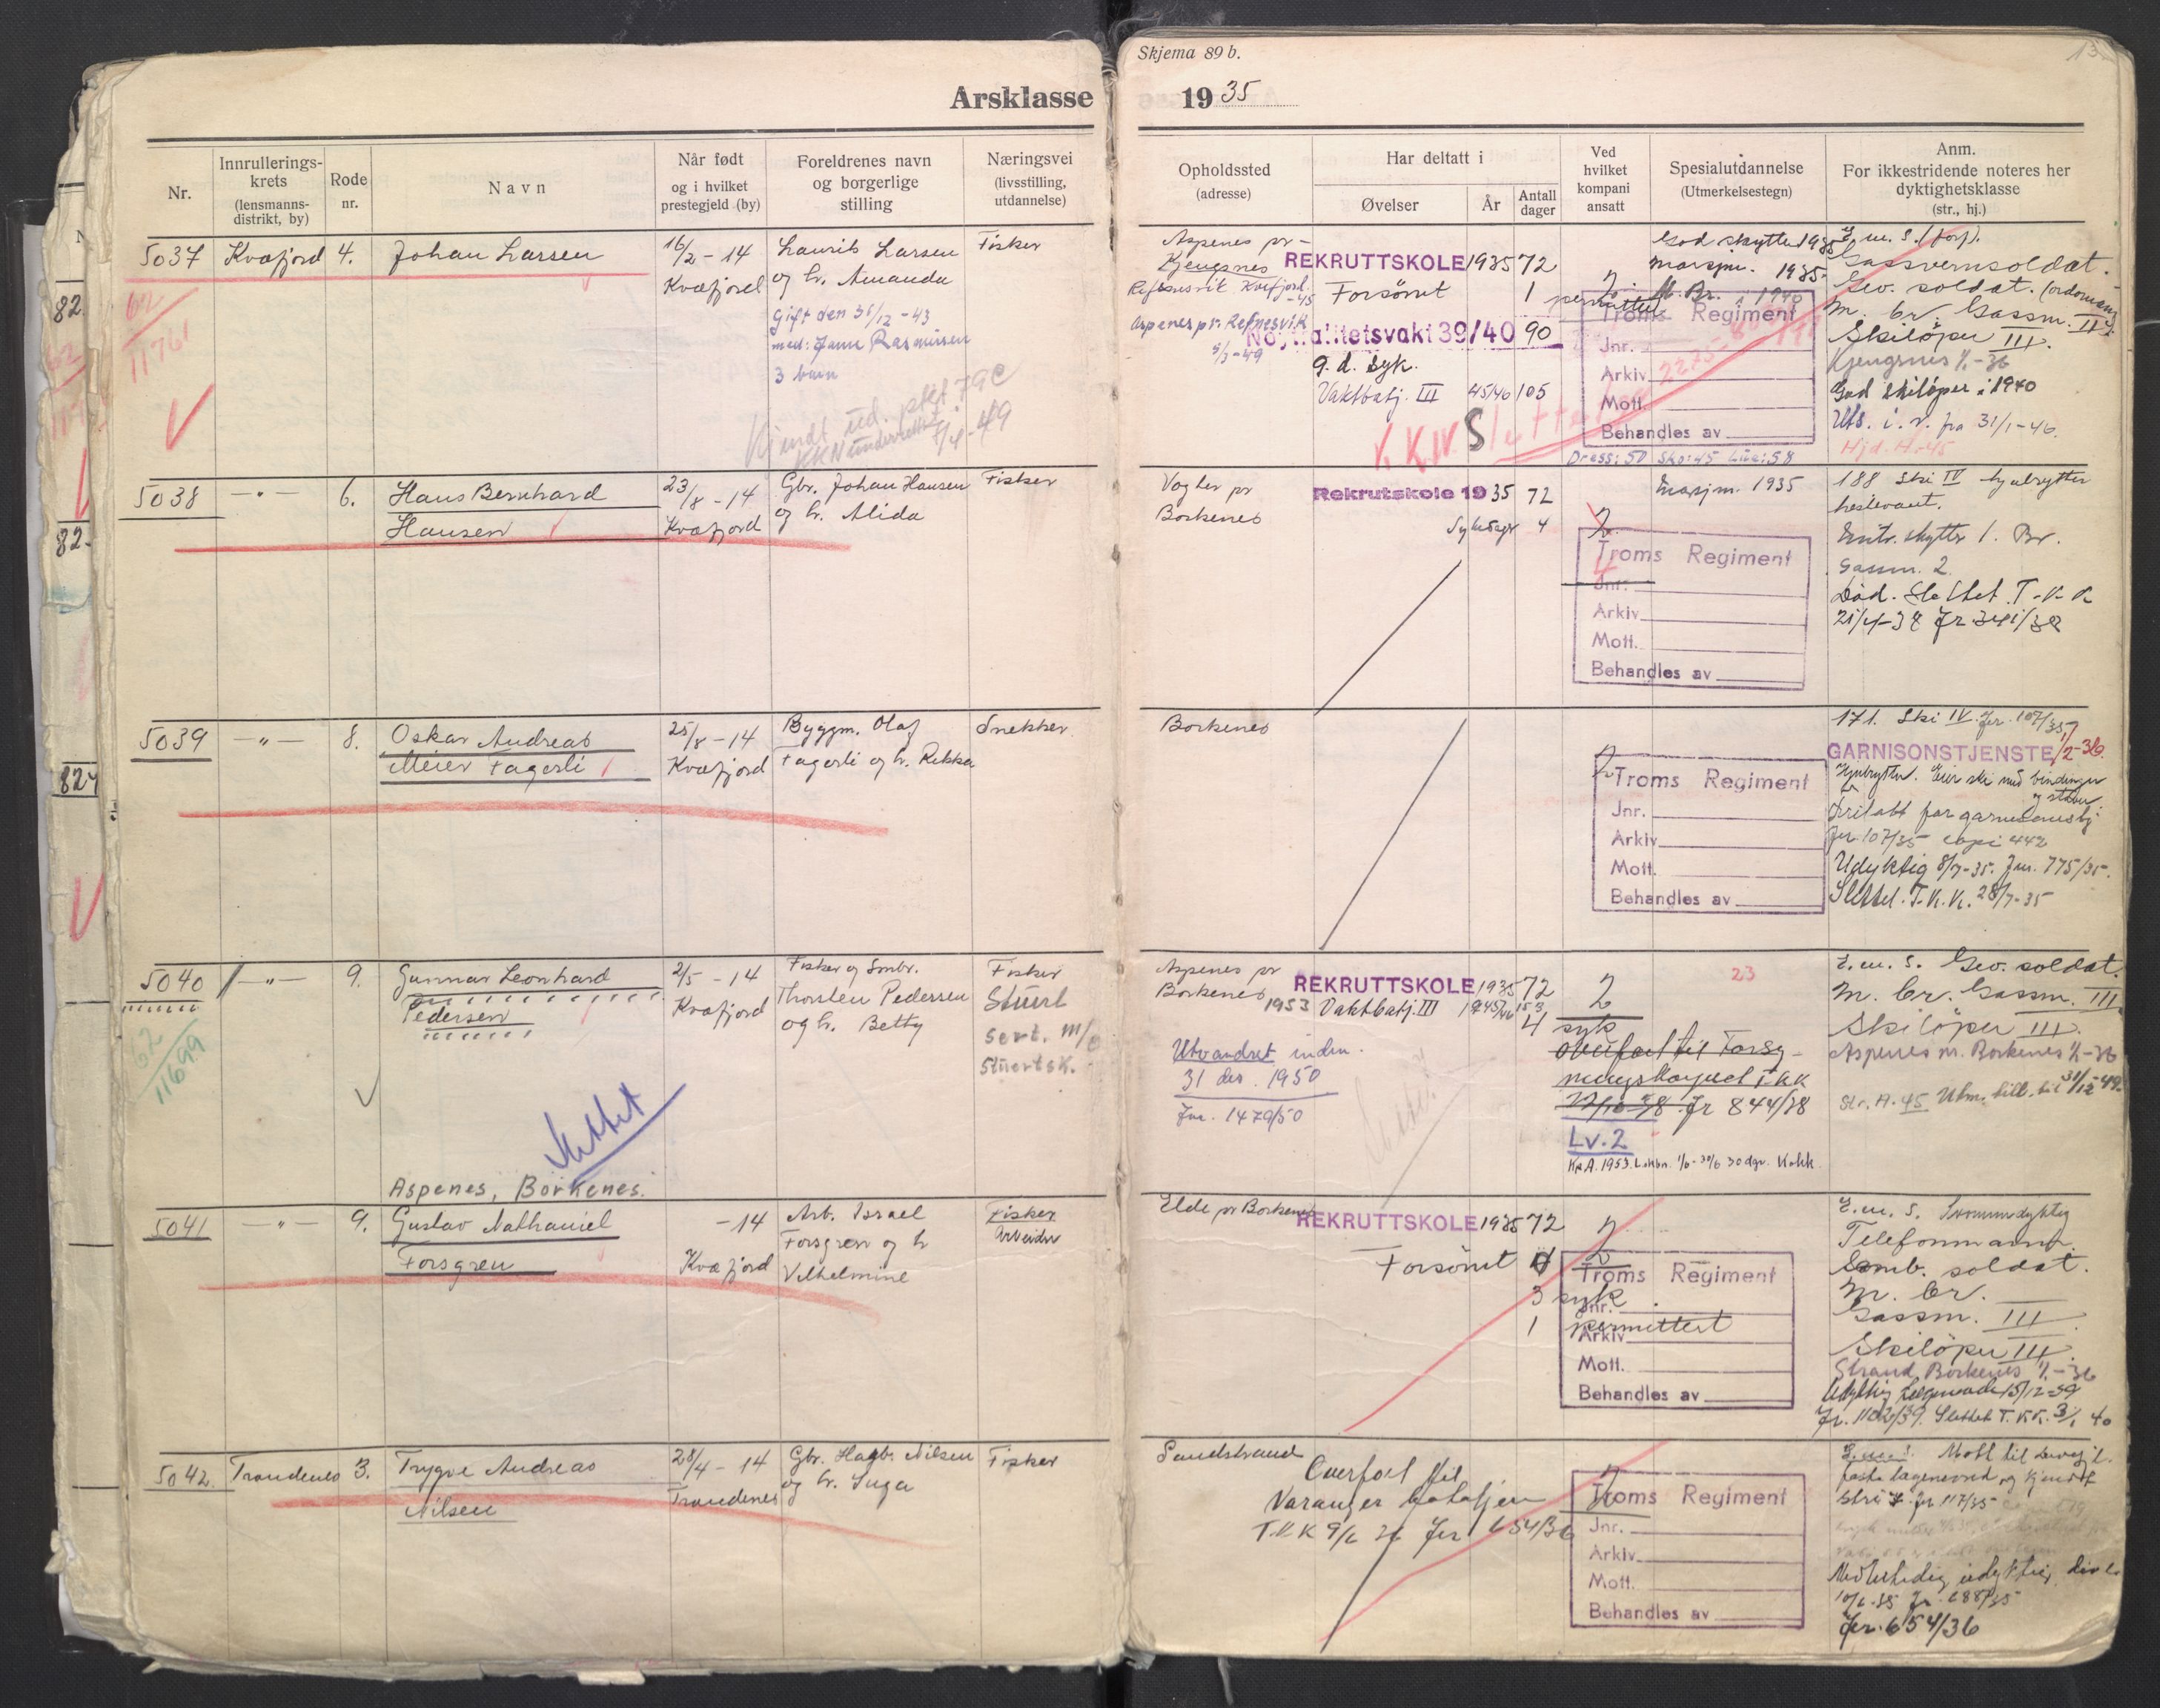 Skjema 89 b.
Årsklasse 1935
Nr.
Innrullerings-
krets
(lensmanns-
distrikt, by)
Rode
nr.
Navn
Når født
og i hvilket
prestegjeld (by)
Foreldrenes navn
og borgerlige
stilling
Næringsvei
(livsstilling,
utdannelse)
Opholdssted
(adresse)
Har deltatt i
Øvelser
År
Antall
dager
Ved
hvilket
kompani
ansatt
Spesialutdannelse
(Utmerkelsestegn)
Anm.
For ikkestridende noteres her
dyktighetsklasse
(str., hj.)
5037 Kvæfjord 4. Johan Larsen
62
11761
16/2 - 14
Kvæfjord
Laurits Larsen
og h. Amanda
Gift den 31/12 - 43
3 barn
Fisker
Aspenes pr
Kjengsnes
Aspenes pr. Refsnesvik
REKRUTTSKOLE 1935 72
Forsömt 1 permittert
Nøytralitetsvakt 39/40 90
g. d. syk.
Vaktbatj. III 45/46 105
V. KIV. Slettet
God skytter 1935
Marsjm. 1935.
Troms Regiment
Jnr.
Arkiv
Mott.
Behandles av
Dress: 50 Sko: 45 Lue: 58
E. m. S. (forf).
Gassvernsoldat.
Gev. soldat. (ordonnans)
M. br. Gassm. III.
Skilöper III.
Kjengsnes 1/1-36
God skilöper i 1940
Uts. i. r. fra 31/1-46.
Hjd. H.-45
5038 —"— 6. Hans Bernhard
Hansen
23/8 - 14
Kvæfjord
Gbr. Johan Hansen
og h. Alida
Fisker
Borkenes
Rekrutskole 1935 72
Sykedage 4
2
Marsjm. 1935
Troms Regiment
Jnr.
Arkiv
Mott.
Behandles av
188 Ski IV hjulrytter
hestevant.
Gassm. 2.
Död. Slettet T.K.K
21/4-38 Jr 341/38
5039 —"— 8. Oskar Andreas
Meier Fagerli
25/8 - 14
Kvæfjord
Byggm. Olaf
Fagerli og h. Rikka
Snekker
Borkenes
2
Troms Regiment
Jnr.
Arkiv
Mott.
Behandles av
171. Ski IV. Jr. 107/35
GARNISONSTJENSTE 1/2-36.
Hjulrytter. Eier ski med bindinger
og staver
Fritatt for garnisonstj.
Jr. 107/35 copi 442
Udyktig 8/7-35. Jnr. 775/35.
Slettet. T.K.K. 28/7-35
5040 —"— 9. Gunnar Leonhard
Pedersen
62
11699
Slettet
Aspenes, Borkenes.
2/5 - 14
Kvæfjord
Fisker og Smbr.
Thorsten Pedersen
og h. Betty
Fisker
Stuert
sert. m/
Stuertsk.
Aspenes pr
Borkenes
Utvandret inden.
31 des. 1950
Jnr. 1479/50
REKRUTTSKOLE 1935 72
1953 Vaktbatj. III 1945/46 153
4 syk
2
Overført til Forsy-
ningskorpset T.K.K
Jr 844/38
Lv. 2
23
E. m. S. Gev. soldat.
M. br. Gassm. III
Skilöper III.
Aspenes pr. Borkenes 1/1-36
Str. A. 45 Utm. till. til 31/12-49.
5041 —"— 9. Gustav Nathaniel
Forsgren
-14
Kvæfjord
Arb. Israel
Forsgren og h
Vilhelmine
Fisker
Arbeider
Elde pr Borkenes
REKRUTTSKOLE 1935 72
Forsömt 4
3 syk
1 permittert
2
Troms Regiment
Jnr.
Arkiv
Mott.
Behandles av
E. m. S. Svømmedyktig
Telefonmann.
Komb. soldat.
M. br.
Gassm. III
Skilöper III.
Strand, Borkenes 1/1-36
Udyktig Lægenevnd 15/12-39
Jr. 1102/39. Slettet T.KK. 3/1 40
5042. Trondenes 3. Trygve Andreas
Nilsen
28/4 - 14
Trondenes
Gbr. Hagb. Nilsen
og h. Inga
Fisker
Sandstrand
Overfört til
Varanger bataljon
T.K.K 9/6 36 Jnr 654/36
2
Troms Regiment
Jnr.
Arkiv
Mott.
Behandles av
E. m. S.
Jr 117/35
Midlertidig udyktig
Jnr. 654/36